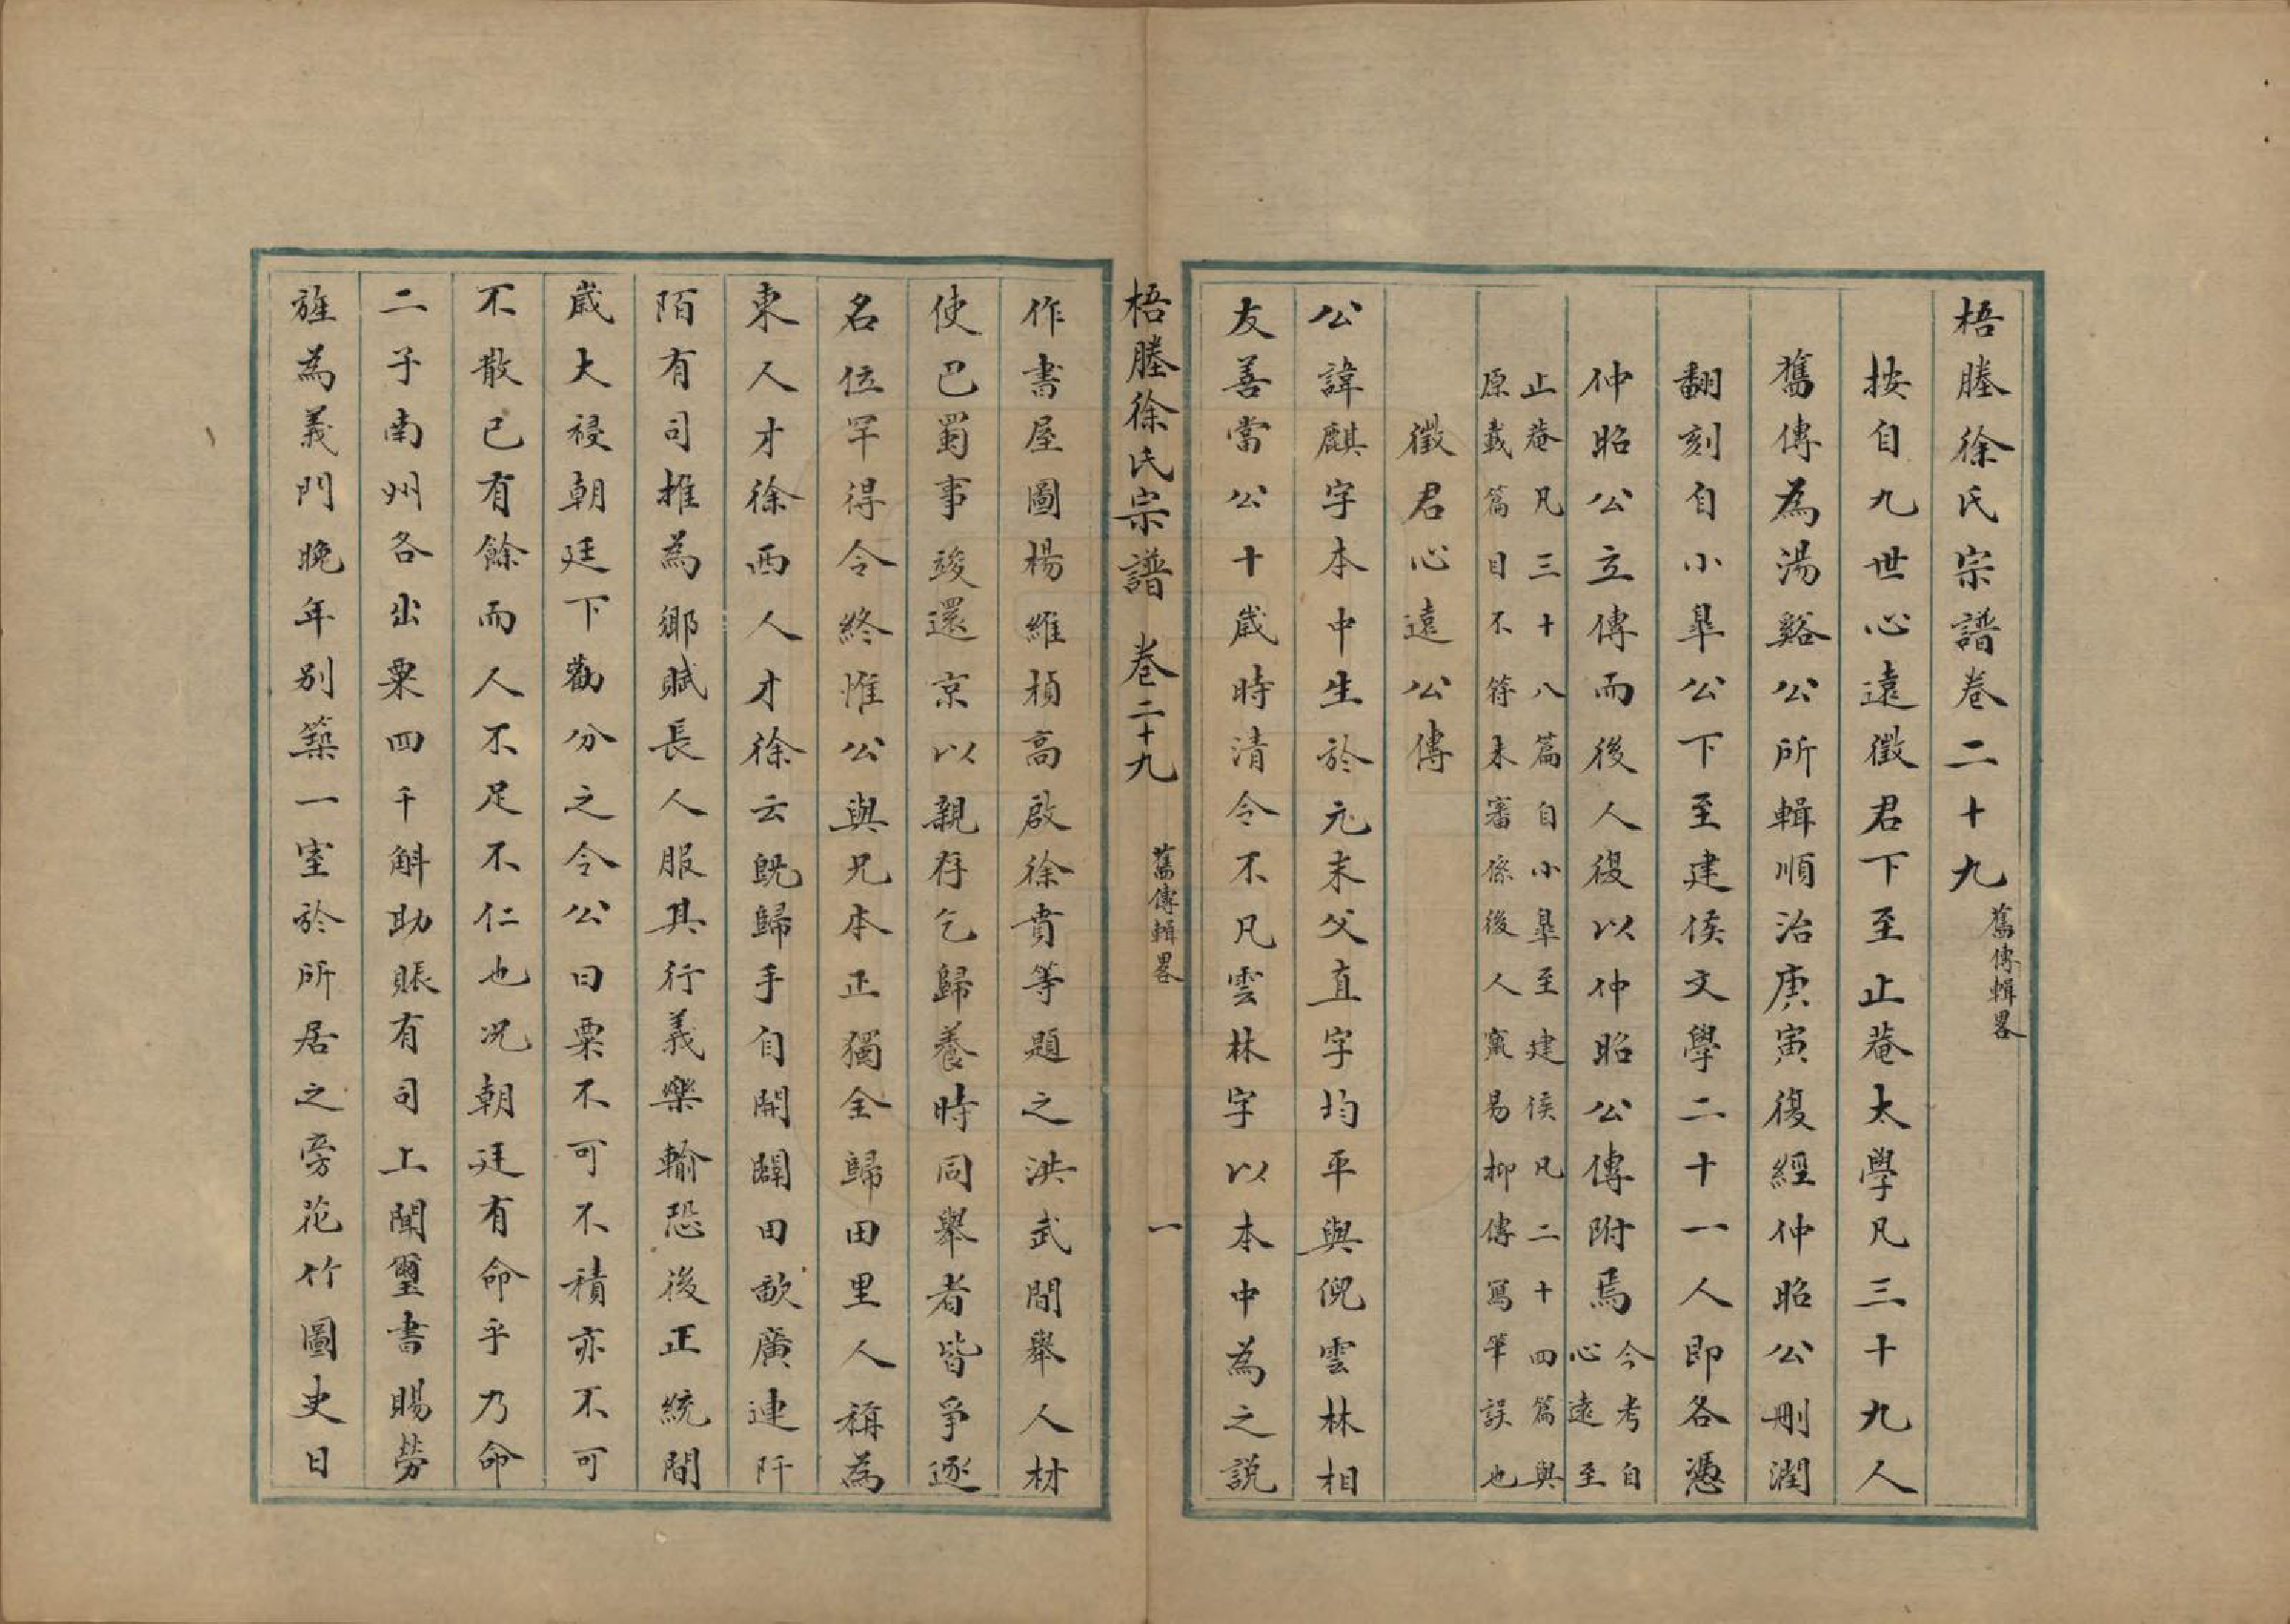 梧塍徐氏宗譜卷二十九 舊傳輯畧
按自九世心遠徵君下至止菴太學凡三十九人
舊傳為湯谿公所輯順治庚寅復經仲昭公刪潤
翻刻自小臯公下至建侯文學二十一人即各憑
仲昭公立傳而後人復以仲昭公傳附焉 今考自
心遠至
止菴凡三十八篇自小臯至建侯凡二十四篇與
原載篇目不符未審係後人竄易抑傳寫筆誤也
徵君心遠公傳
公諱麒字本中生於元末父直字均平與倪雲林相
友善當公十歲時清令不凡雲林字以本中為之說
梧塍徐氏宗譜 卷二十九 舊傳輯畧 一
作書屋圖楊維楨高啟徐賁等題之洪武間舉人材
使巴蜀事竣還京以親存乞歸養時同舉者皆爭逐
名位罕得令終惟公與兄本正獨全歸田里人稱為
東人才徐西人才徐云既歸手自開闢田畝廣連阡
陌有司推為鄉賦長人服其行義樂輸恐後正統間
歲大祲朝廷下勸分之令公曰粟不可不積亦不可
不散已有餘而人不足不仁也況朝廷有命乎乃命
二子南州各出粟四千斛助賑有司上聞璽書賜勞
旌為義門晚年別築一室於所居之旁花竹圖史日